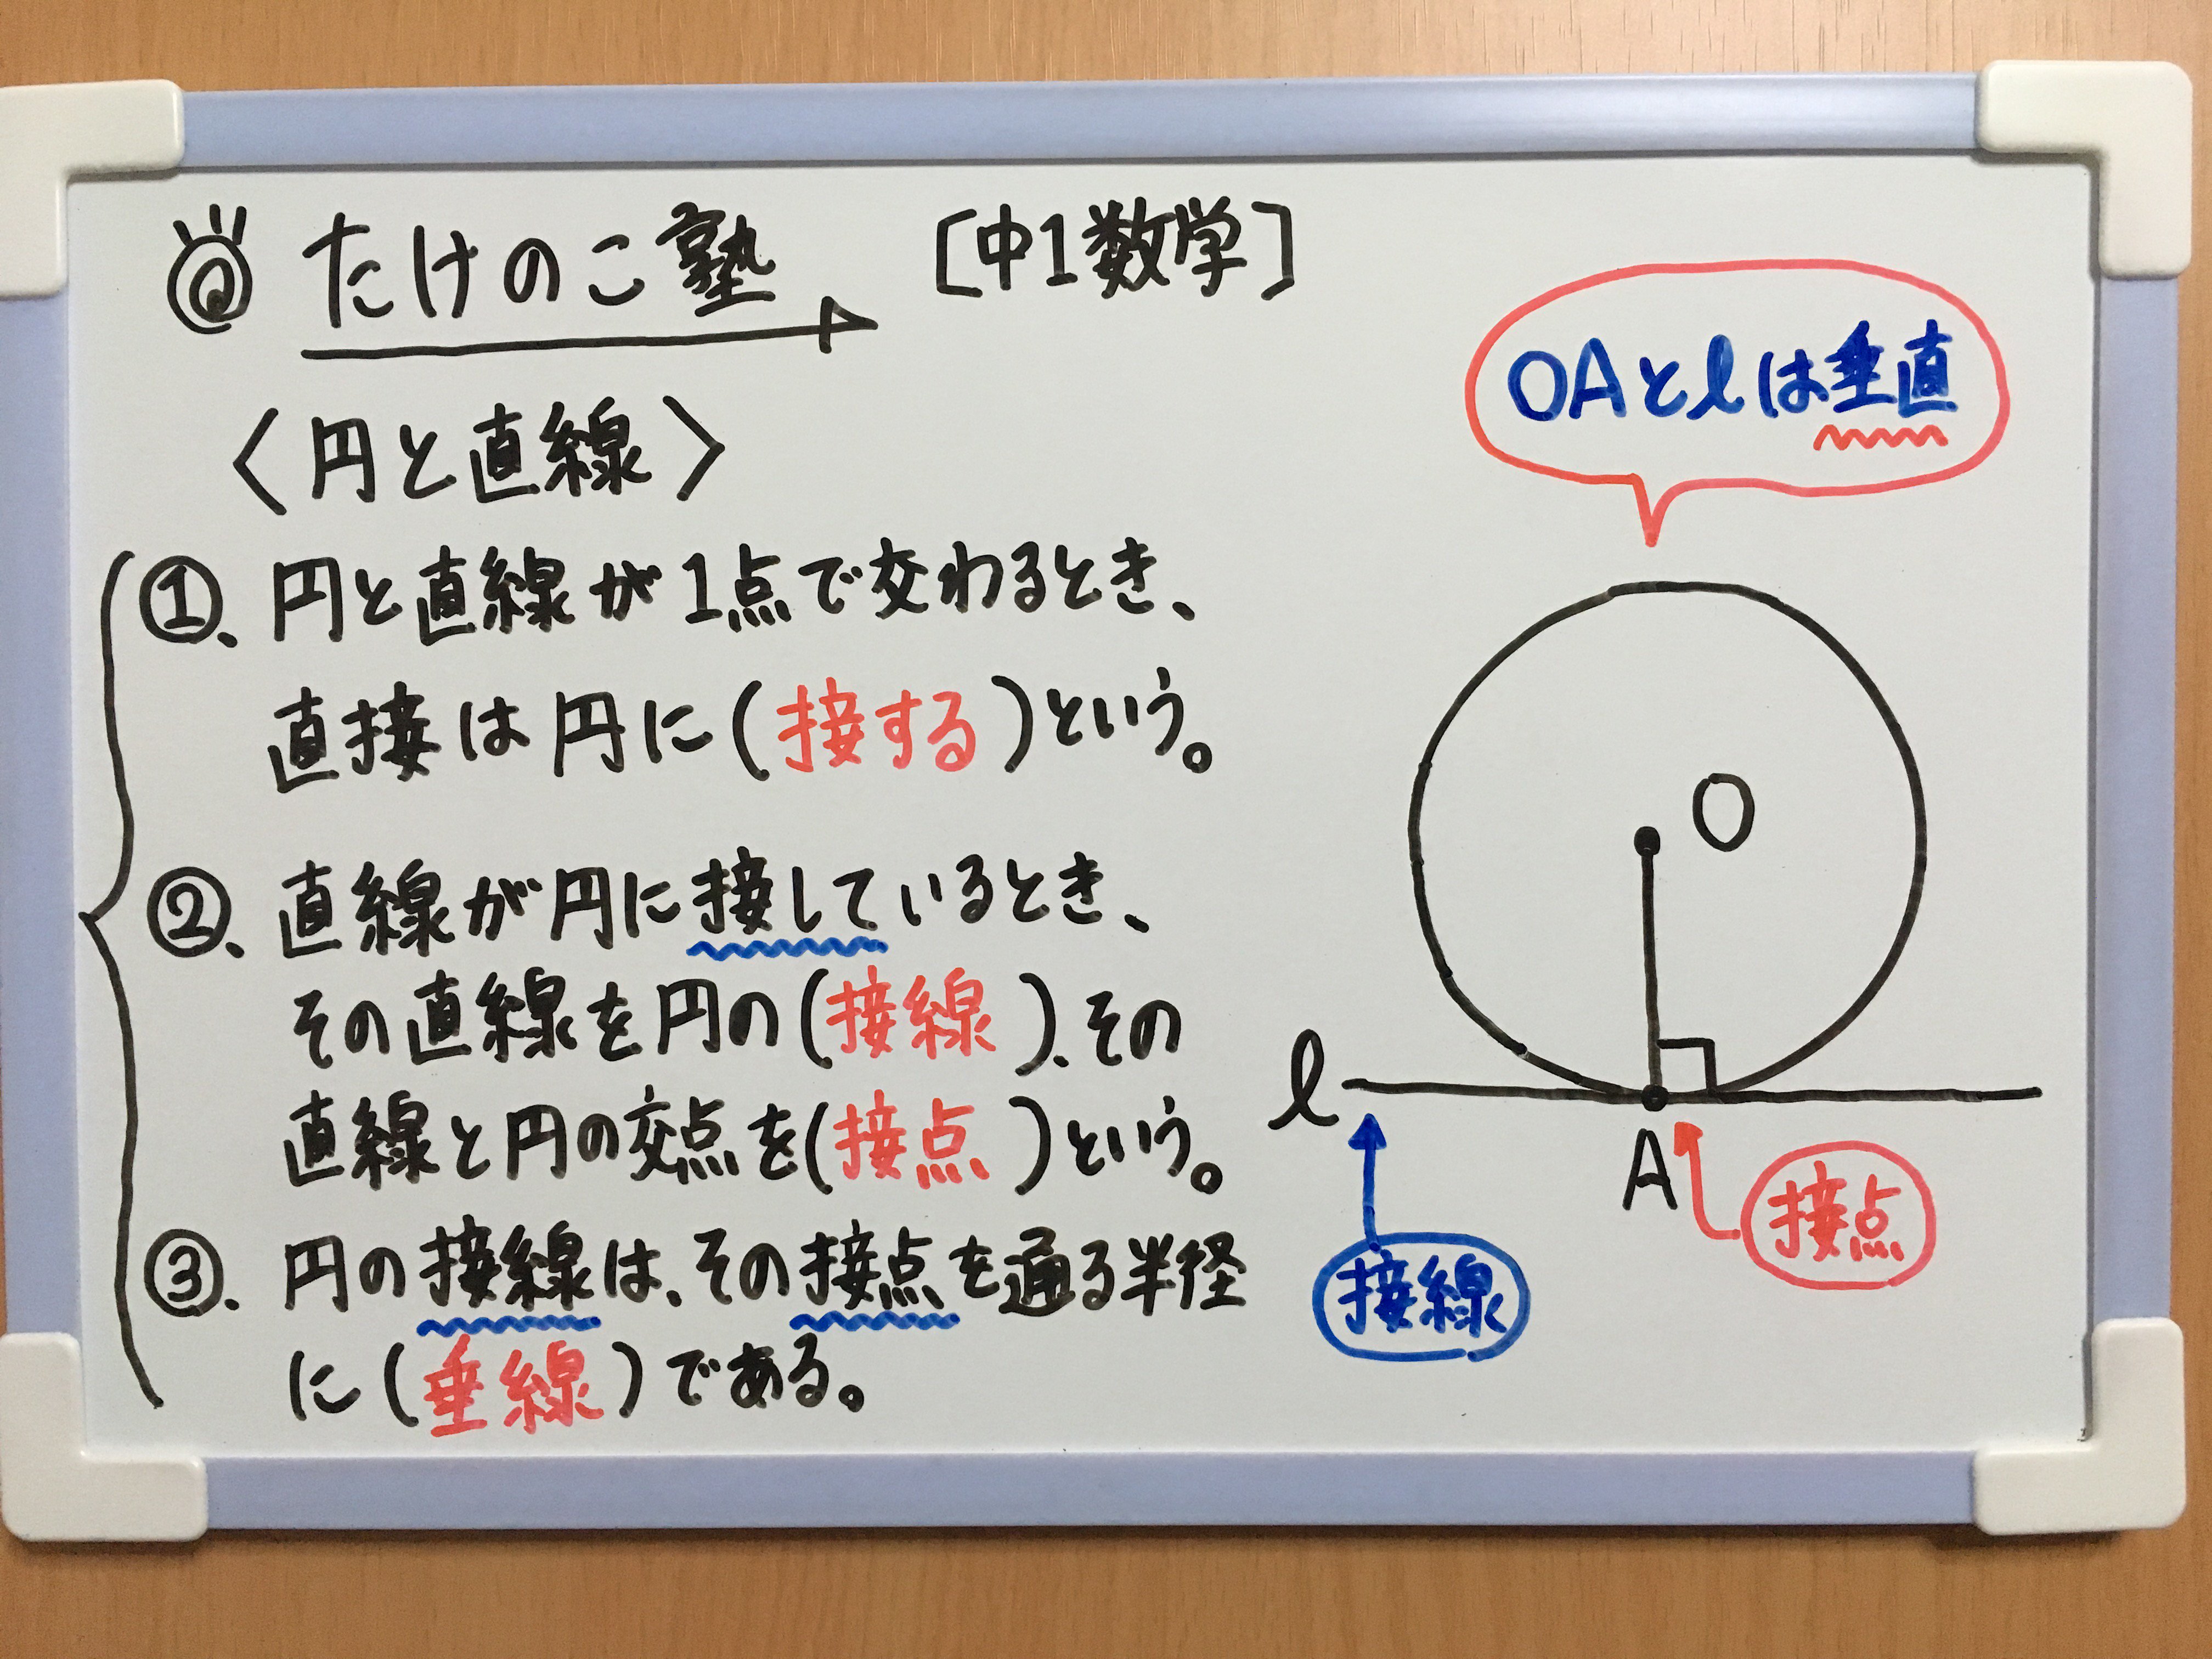 たけのこ塾 [中1数学]
〈円と直線〉
①、円と直線が1点で交わるとき、
直接は円に(接する)という。
②、直線が円に接しているとき、
その直線を円の(接線)、その
直線と円の交点を(接点)という。
③、円の接線は、その接点を通る半径
に(垂線)である。
OAとlは垂直
O
l
A
接点
接線